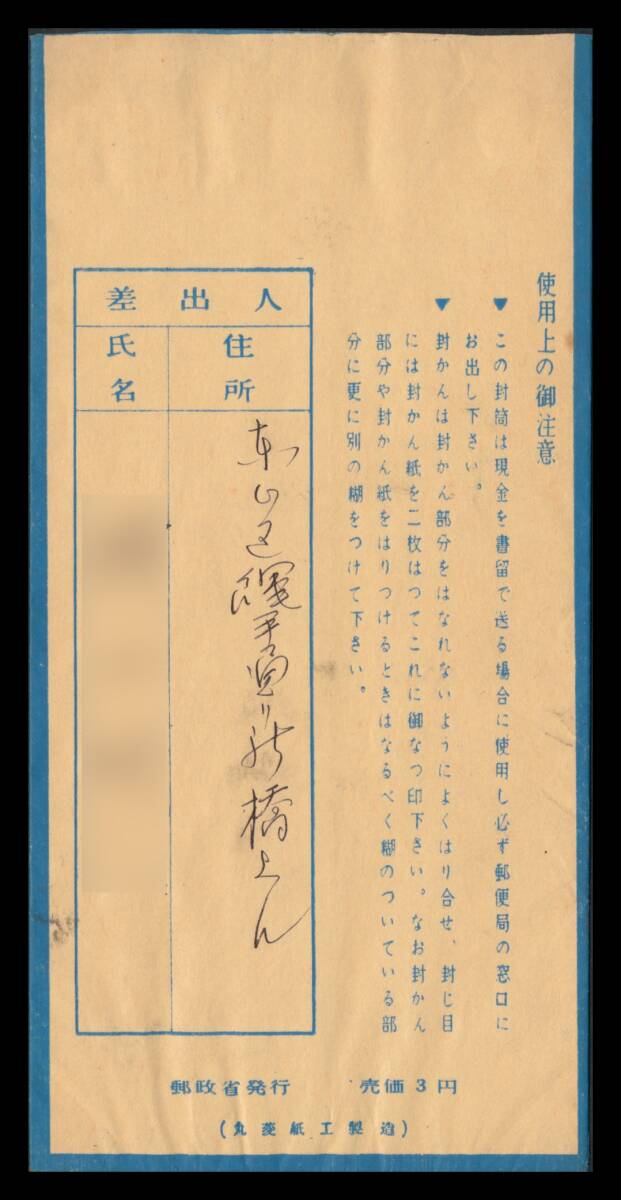 使用上の御注意
▼この封筒は現金を書留で送る場合に使用し必ず郵便局の窓口に
お出し下さい。
▼封かんは封かん部分をはなれないようによくはり合せ、封じ目
には封かん紙を二枚はつてこれに御なつ印下さい。なお封かん
部分や封かん紙をはりつけるときはなるべく糊のついている部
分に更に別の糊をつけて下さい。
差出人
住所
東山区縄手通り新橋上ル
氏名
郵政省発行 売価3円
(丸菱紙工製造)